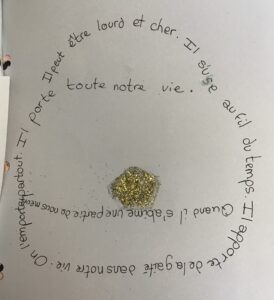 Il peut être lourd et cher. Il s'use au fil du temps. Il apporte de la gaité dans notre vie. On l'emporte partout
Il porte toute notre vie.
Quand il s'abime une partie de nous